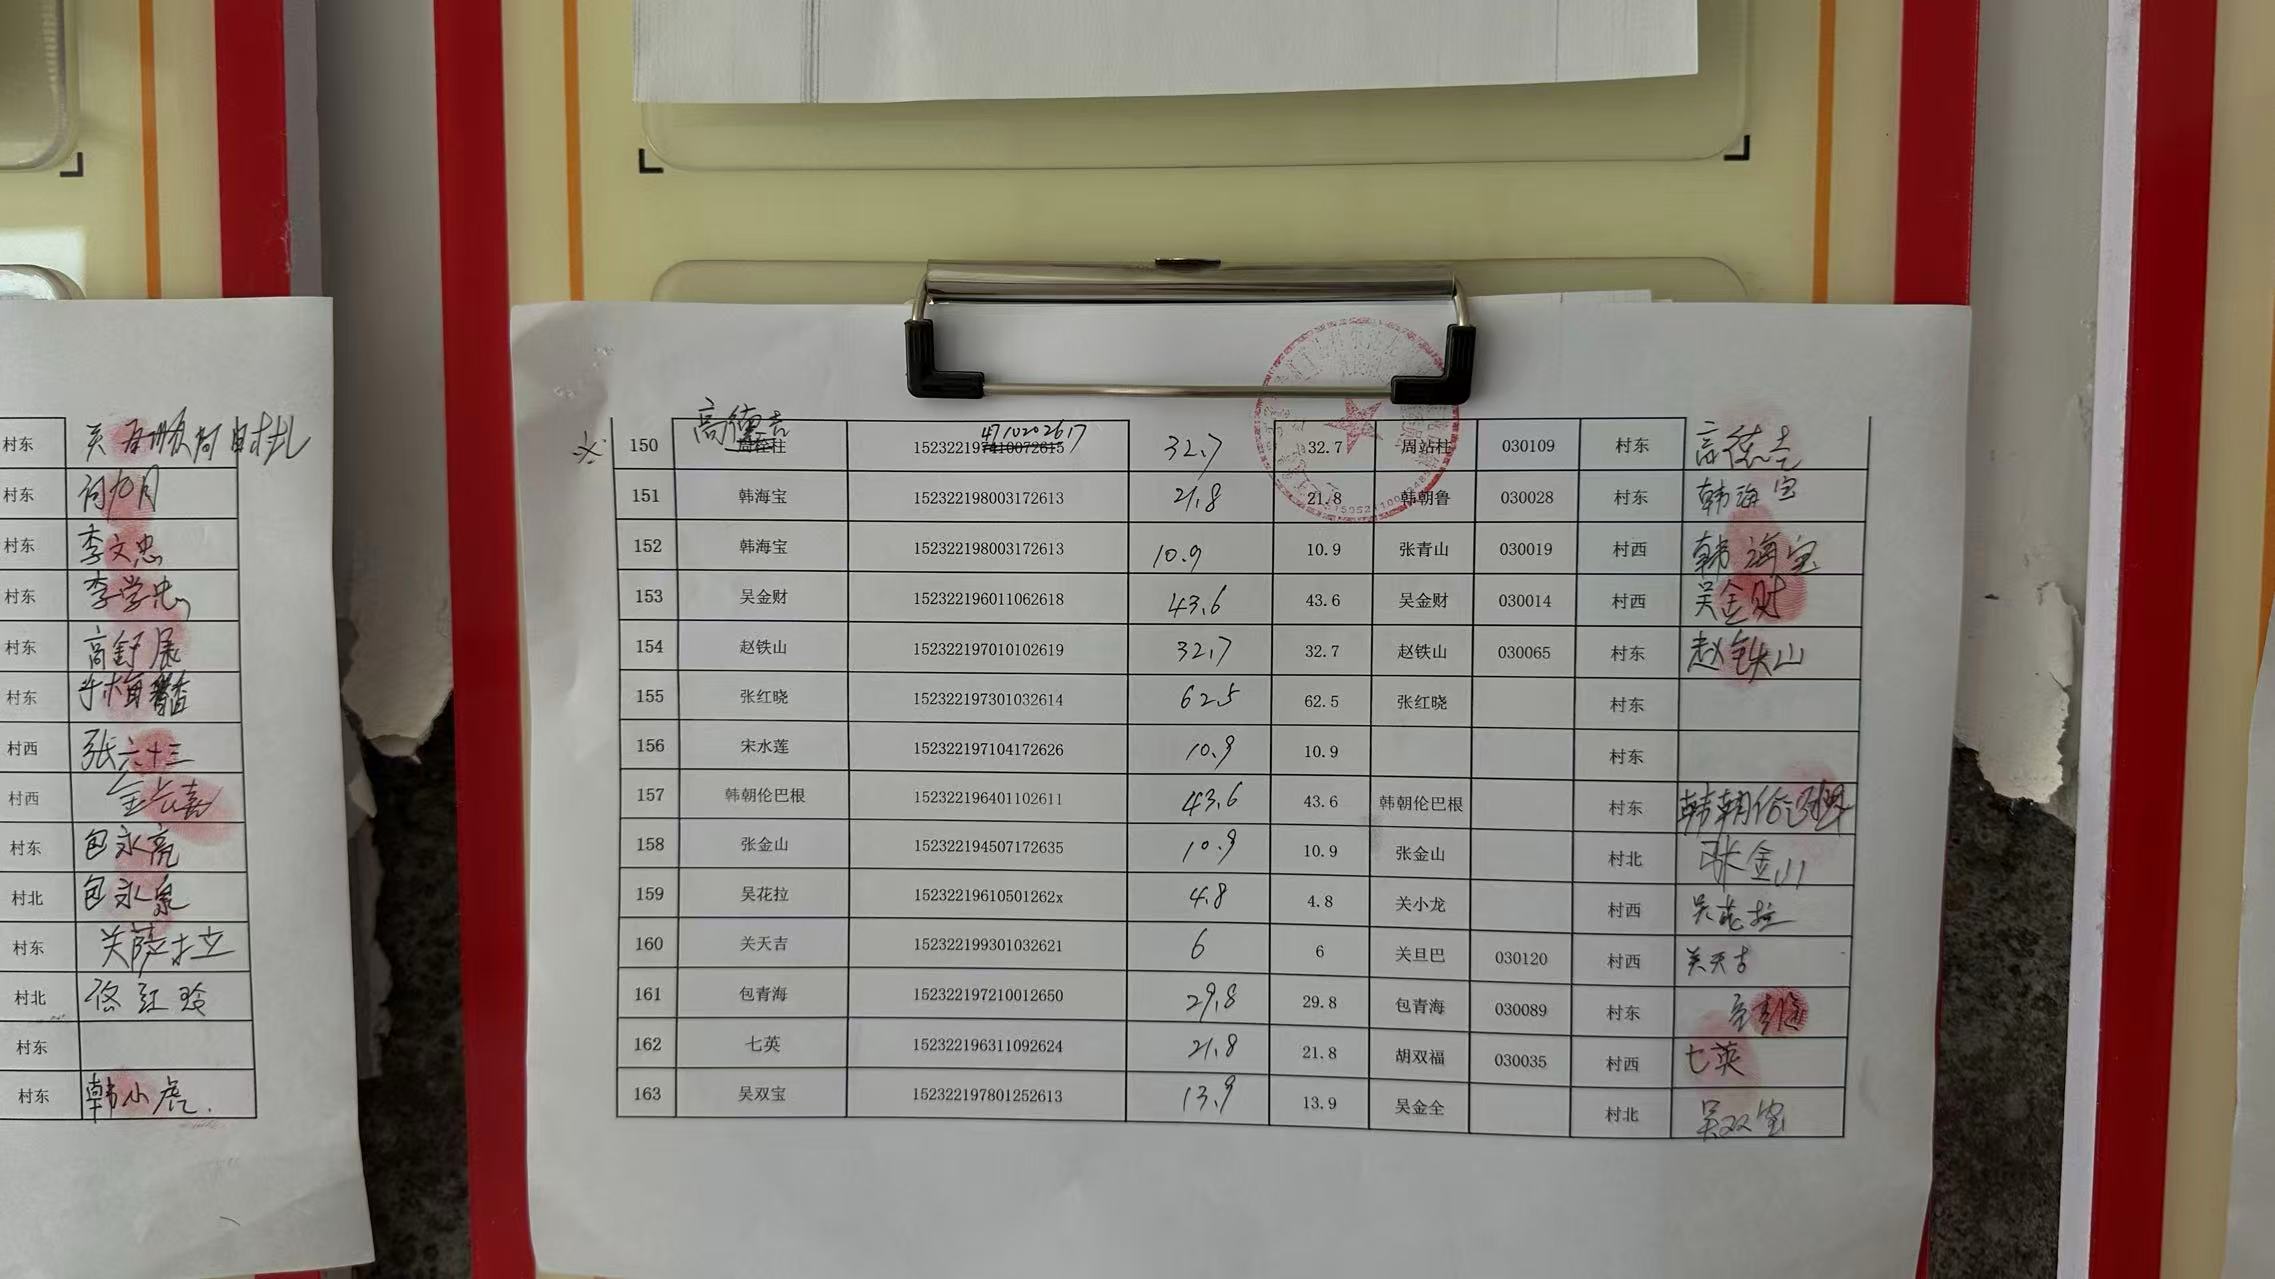 村东
村东
村东 李文忠
村东 李学忠
村东 高舒展
村东
村西 张六十三
村西
村东 包永亮
村北 包永泉
村东 关萨拉
村北 佟红玲
村东
村东 韩小虎.
高德吉
4710202617
150 周程柱 152322197410072615 32.7 32.7 周站柱 030109 村东 高德吉
151 韩海宝 152322198003172613 21.8 21.8 韩朝鲁 030028 村东 韩海宝
152 韩海宝 152322198003172613 10.9 10.9 张青山 030019 村西 韩海宝
153 吴金财 152322196011062618 43.6 43.6 吴金财 030014 村西 吴金财
154 赵铁山 152322197010102619 32.7 32.7 赵铁山 030065 村东 赵铁山
155 张红晓 152322197301032614 62.5 62.5 张红晓 村东
156 宋水莲 152322197104172626 10.9 10.9 村东
157 韩朝伦巴根 152322196401102611 43.6 43.6 韩朝伦巴根 村东 韩朝伦巴根
158 张金山 152322194507172635 10.9 10.9 张金山 村北 张金山
159 吴花拉 15232219610501262x 4.8 4.8 关小龙 村西 吴花拉
160 关天吉 152322199301032621 6 6 关旦巴 030120 村西 关天吉
161 包青海 152322197210012650 29.8 29.8 包青海 030089 村东
162 七英 152322196311092624 21.8 21.8 胡双福 030035 村西 七英
163 吴双宝 152322197801252613 13.9 13.9 吴金全 村北 吴双宝